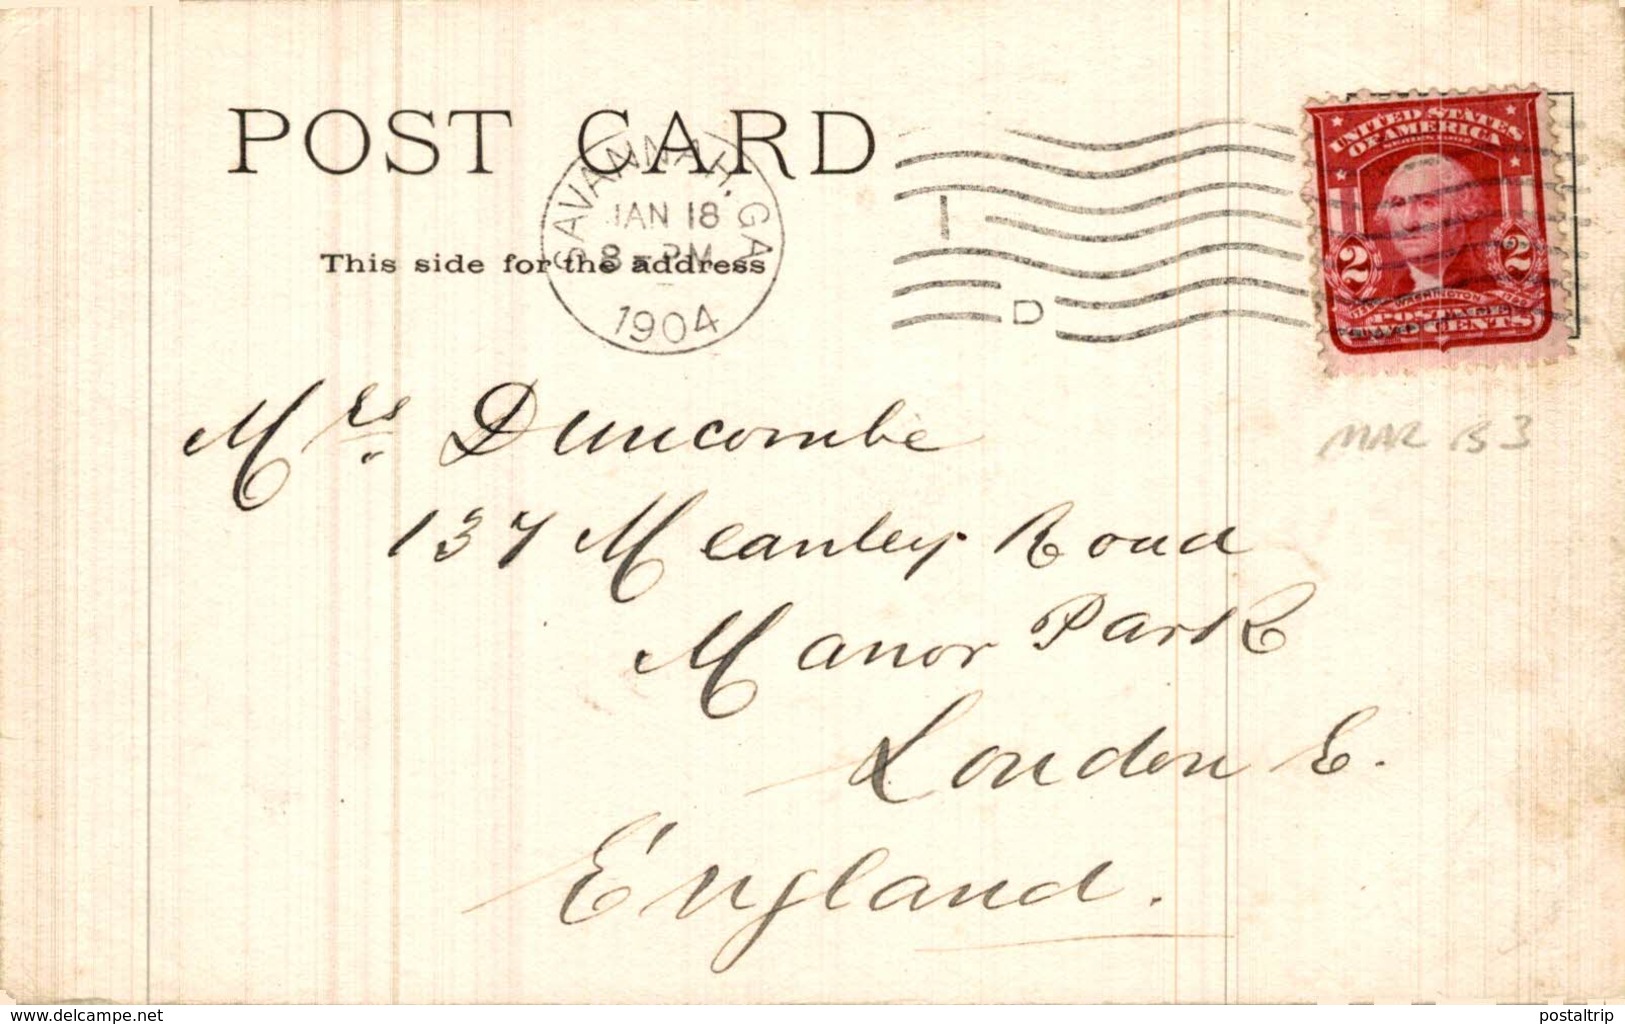 POST CARD
SAVANNAH, GA
JAN 18
8 - PM
1904
This side for the address
I
D
UNITED STATES
OF AMERICA
2 2
WASHINGTON
POSTAGE
TWO CENTS
Mrs. Duncombe
MAR B3
137 Meanley Road
Manor Park
London E.
England.
www.delcampe.net
postaltrip